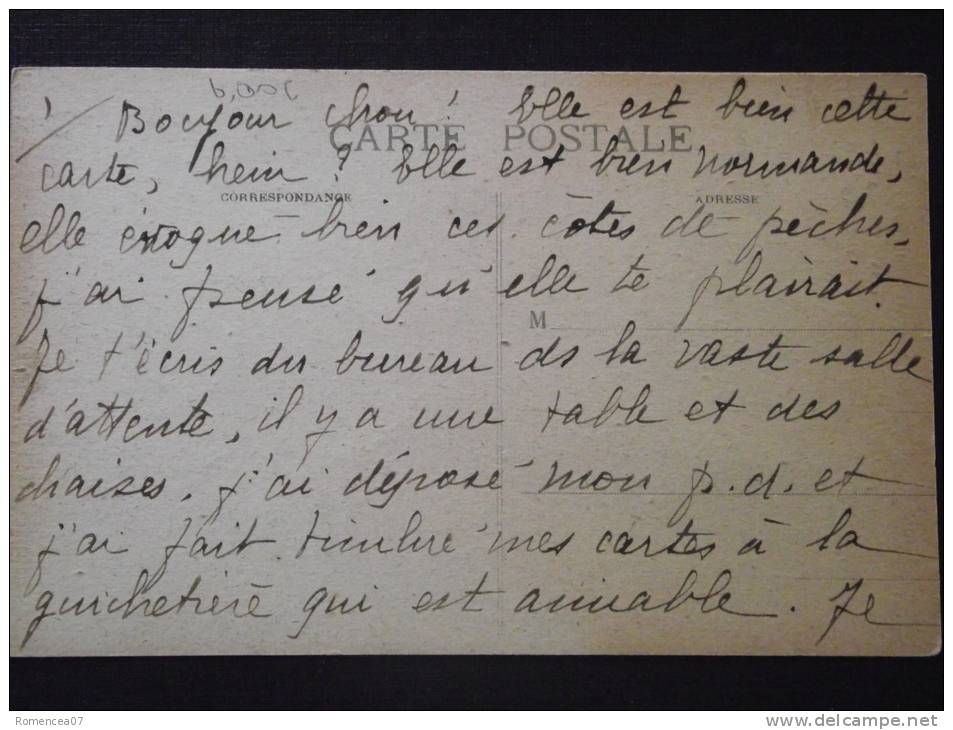 6,00€
1/ Bonjour chou ! Elle est bien cette
CARTE POSTALE
carte, hein ? Elle est bien normande,
CORRESPONDANCE
ADRESSE
elle évoque bien ces côtes de pêches,
j'ai pensé qu'elle te plairait.
M
Je t'écris du bureau ds la vaste salle
d'attente, il y a une table et des
chaises. j'ai déposé mon p.d. et
j'ai fait timbré mes cartes à la
guichetière qui est aimable. Je
Romencea07
www.delcampe.net